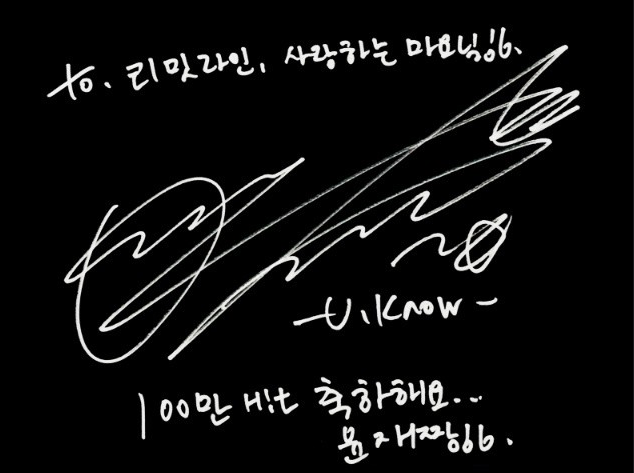 to. 리밋라인, 사랑하는
-U.Know-
100만 Hit 축하해요...
윤재짱